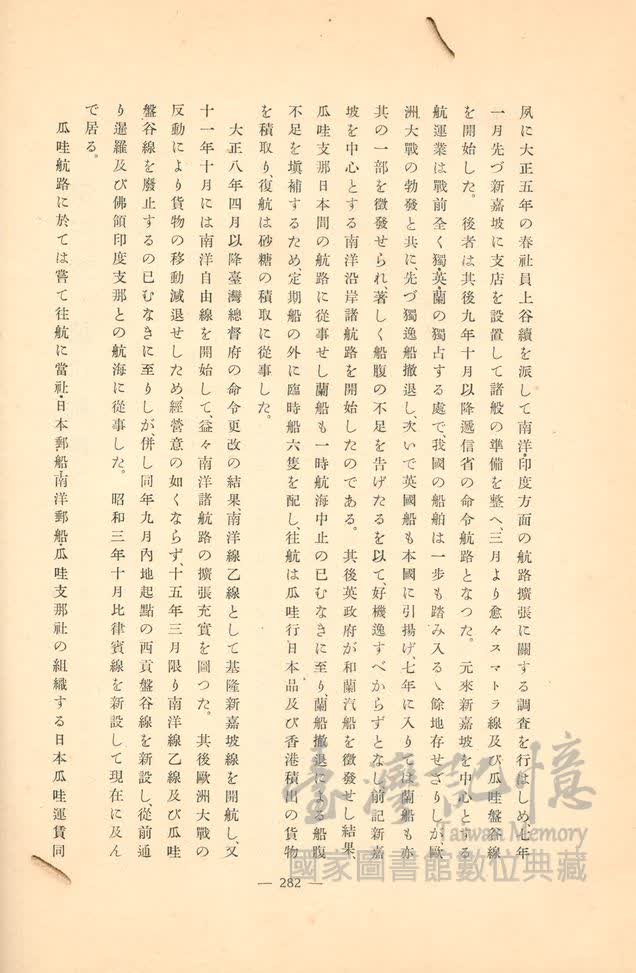 夙に大正五年の春社員上谷續を派して南洋・印度方面の航路擴張に關する調査を行はしめ、七年
一月先づ新嘉坡に支店を設置して諸般の準備を整へ、三月より愈々スマトラ線及び瓜哇盤谷線
を開始した。後者は其後九年十月以降遞信省の命令航路となつた。元來新嘉坡を中心とする
航運業は戰前全く獨・英・蘭の獨占する處で、我國の船舶は一步も踏み入るゝ餘地存せざりしが、歐
洲大戰の勃發と共に、先づ獨逸船撤退し、次いで英國船も本國に引揚げ、七年に入りては蘭船も亦
其の一部を徵發せられ、著しく船腹の不足を告げたるを以て、好機逸すべからずとなし前記新嘉
坡を中心とする南洋沿岸諸航路を開始したのである。其後英政府が和蘭汽船を徵發せし結果、
瓜哇支那日本間の航路に從事せし蘭船も一時航海中止の已むなきに至り、蘭船撤退による船腹
不足を塡補するため、定期船の外に臨時船六隻を配し、往航は瓜哇行日本品及び香港積出の貨物
を積取り、復航は砂糖の積取に從事した。
大正八年四月以降臺灣總督府の命令更改の結果、南洋線乙線として基隆新嘉坡線を開航し、又
十一年十月には南洋自由線を開始して、益々南洋諸航路の擴張充實を圖つた。其後歐洲大戰の
反動により貨物の移動減退せしため、經營意の如くならず、十五年三月限り南洋線乙線及び瓜哇
盤谷線を廢止するの已むなきに至りしが、併し同年九月內地起點の西貢盤谷線を新設し、從前通
り暹羅及び佛領印度支那との航海に從事した。昭和三年十月比律賓線を新設して現在に及ん
で居る。
瓜哇航路に於ては嘗て往航に當社・日本郵船・南洋郵船・瓜哇支那社の組織する日本瓜哇運賃同
— 282 —
臺灣記憶
Taiwan Memory
國家圖書館數位典藏